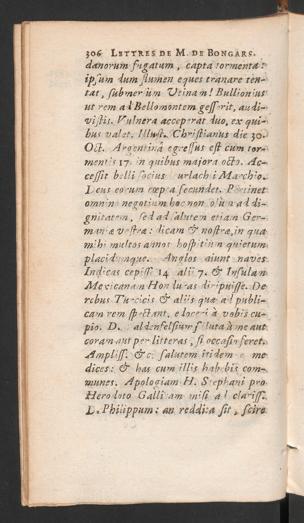 306 LETTRES DE M. DE BONGARS.
danorum fugatum, capta tormenta:
ipsum dum flumen eques tranare ten-
tat, submersum Utinam! Bullionius
ut rem ad Bellomontem gesserit, audi-
vistis. Vulnera acceperat duo, ex qui-
bus valet. Illust. Christianus die 30.
Oct. Argentinâ egressus est cum tor-
mentis 17. in quibus majora octo. Ac-
cessit belli socius Durlachi Marchio.
Deus eorum cœpta secundet. Pertinet
omnino negotium hoc non solum ad di-
gnitatem, sed ad salutem etiam Ger-
maniæ vestræ: dicam & nostræ, in qua
mihi multos annos hospitium quietum
placidumque. Anglos aiunt naves
Indicas cepisse 14. alii 7. & Insulam
Mexicanam Honduras diripuisse. De
rebus Turcicis & aliis quæ ad publi-
cam rem spectant, edoceri à vobis cu-
pio. D. saluta à me aut
coram aut per litteras, si occasio feret.
Ampliss. &c. salutem itidem à me
dices: & has cum illis habebis com-
munes. Apologiam H. Stephani pro
Herodoto Gallicam misi ad clariss.
D. Philippum: an reddita sit, scire